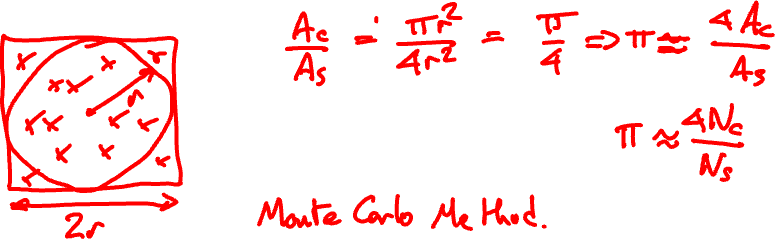 A_c/A_s = πr²/4r² = π/4 => π ≈ 4A_c/A_s
π ≈ 4N_c/N_s
r
2r
Monte Carlo Method.